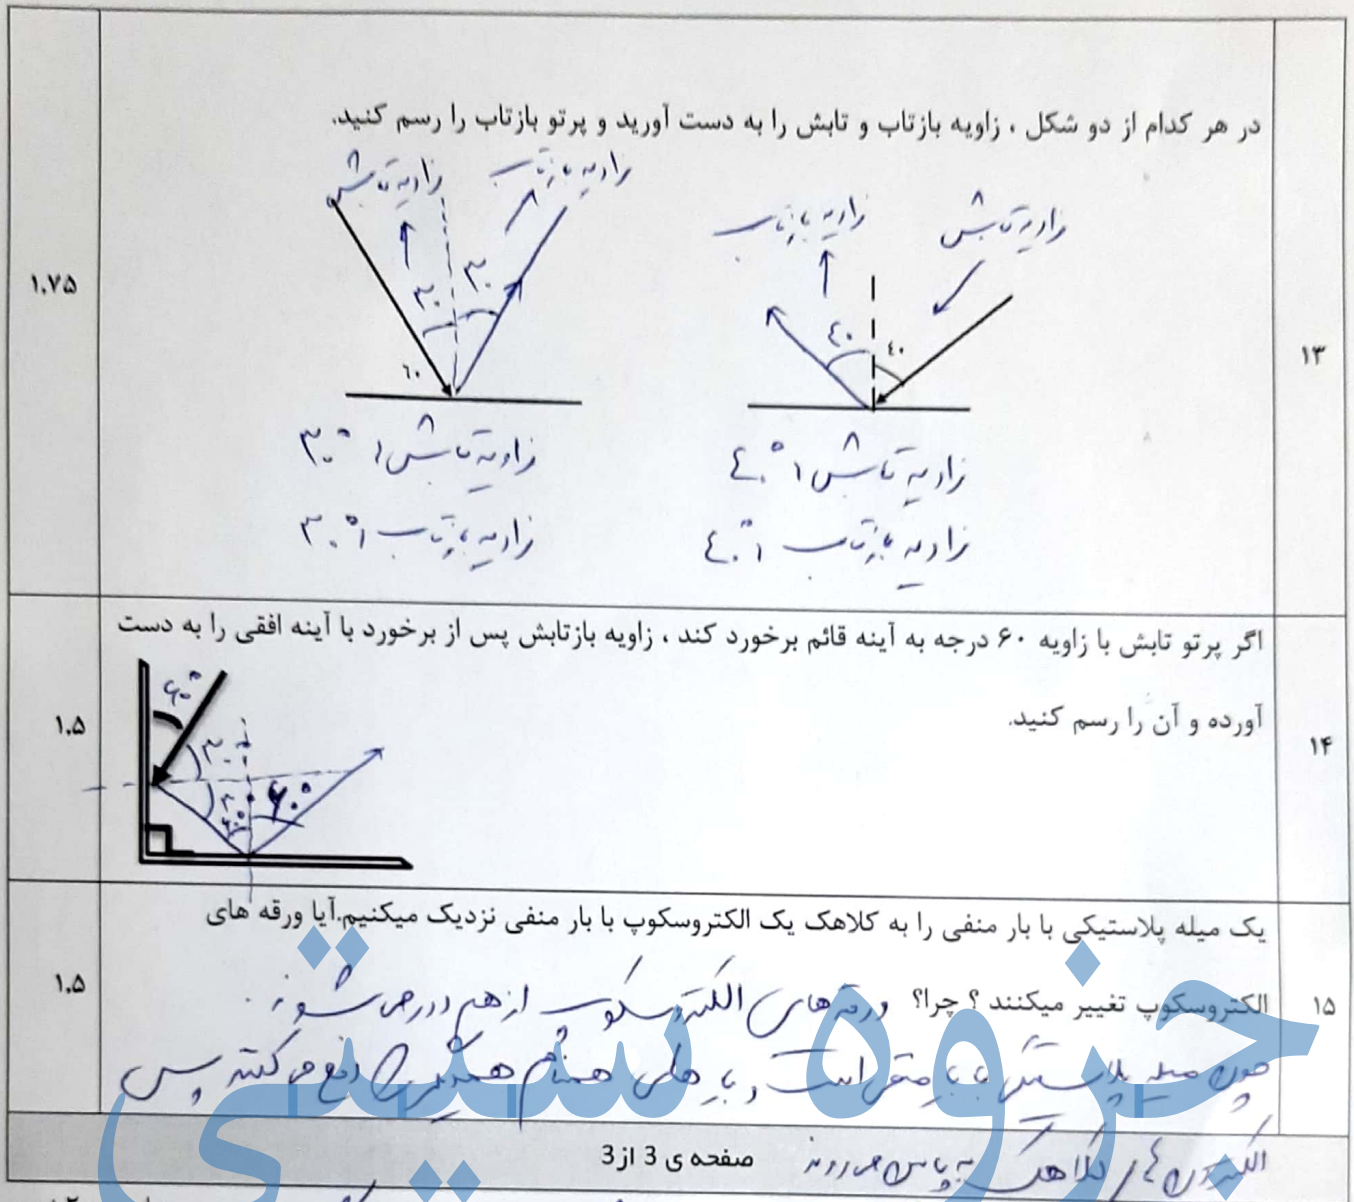 ۱۳
در هر کدام از دو شکل ، زاویه بازتاب و تابش را به دست آورید و پرتو بازتاب را رسم کنید.
۱.۷۵
زاویه تابش
زاویه بازتاب
۴۰
۴۰
زاویه تابش: ۴۰°
زاویه بازتاب: ۴۰°
زاویه بازتاب
زاویه تابش
۳۰
۳۰
۶۰
زاویه تابش: ۳۰°
زاویه بازتاب: ۳۰°
۱۴
اگر پرتو تابش با زاویه ۶۰ درجه به آینه قائم برخورد کند ، زاویه بازتابش پس از برخورد با آینه افقی را به دست
آورده و آن را رسم کنید.
۱.۵
۶۰°
۳۰
۳۰
۶۰°
۶۰°
۱۵
یک میله پلاستیکی با بار منفی را به کلاهک یک الکتروسکوپ با بار منفی نزدیک میکنیم.آیا ورقه های
الکتروسکوپ تغییر میکنند ؟ چرا؟ ورقه‌های الکتروسکوپ از هم دور می شوند.
۱.۵
چون میله پلاستیکی با بار منفی است و بار های همنام همدیگر را دفع می کنند پس
الکترون های کلاهک به پایین می روند
صفحه ی 3 از3
جزوه سیتی